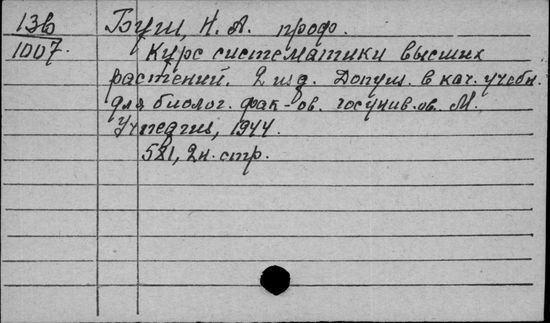 13в Буш, Н. А. проф.
1007. Курс систематики высших
растений. 2 изд. Допущ. в кач. учебн.
для биолог. фак-ов. госунив.ов. М.
Учпедгиз, 1944.
581, 2н. стр.